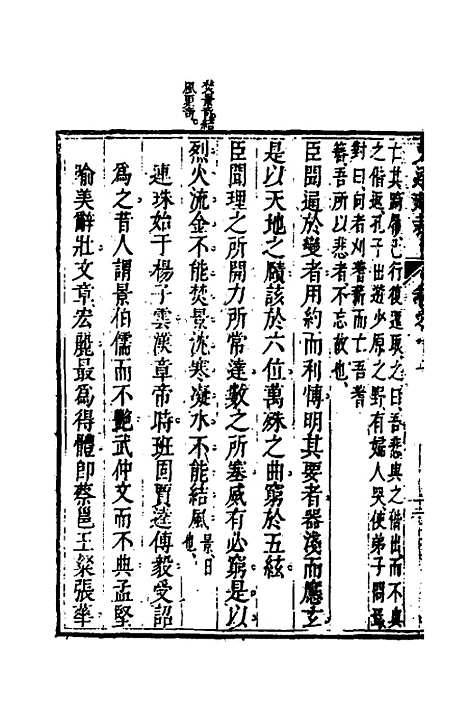 亡其踦履已行復還取之曰吾悲與之偕出而不與
之偕返孔子出遊少原之野有婦人哭使弟子問焉
對曰向者刈蓍薪而亡吾蓍
簪吾所以悲者不忘故也
臣聞適於變者用約而利博明其要者器淺而應玄
是以天地之賾該於六位萬殊之曲窮於五絃
臣聞理之所開力所常達數之所塞威有必窮是以
烈火流金不能焚景沈寒凝水不能結風景日也
焚景結
風更奇
連珠始于楊子雲漢章帝時班固賈逵傅毅受詔
為之昔人謂景伯儒而不艷武仲文而不典孟堅
喻美辭壯文章宏麗最為得體即蔡邕王粲張華